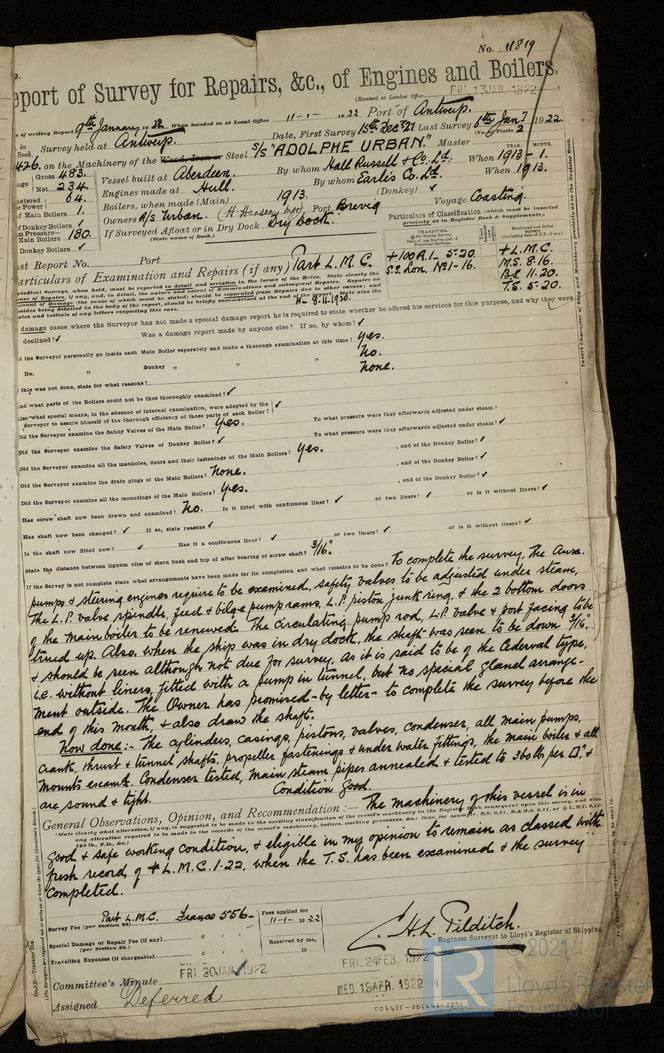 No. 11819
eport of Survey for Repairs, &c., of Engines and Boilers.
(Received at London Office FRI. 13 JAN. 1922)
of writing Report 9th January 1922 When handed in at Local Office 11-1-1922 Port of Antwerp.
Survey held at Antwerp. Date, First Survey 15th Dec. 21 Last Survey 6th Jany 1922
Book. (No. of Visits 2)
426. on the Machinery of the Wood, Iron or Steel S/S "ADOLPHE URBAN." Master
Gross 483. Vessel built at Aberdeen. By whom Hall Russell & Co. Ld. When 1913 - 1.
YEAR. MONTH.
Net 234. Engines made at Hull. By whom Earle's Co. Ld. When 1913.
Power 64. Boilers, when made (Main) 1913. (Donkey) ✓
of Main Boilers 1. Owners A/S Urban. Port Brevig Voyage Coasting.
of Donkey Boilers ✓ If Surveyed Afloat or in Dry Dock Dry Dock.
(State name of Dock.)
Pressure—
Main Boilers 180.
Donkey Boilers ✓
Particulars of Classification (which must be inserted precisely as in Register Book & Supplements).
+ 100 A.1. 5-20. + L.M.C.
S.S. Lon. No 1-16. M.S. 8.16.
B.S. 11.20.
T.S. 5-20.
ast Report No. Port
articulars of Examination and Repairs (if any) Part L.M.C.
damage cases where the Surveyor has not made a special damage report he is required to state whether he offered his services for this purpose, and why they were
declined? ✓ Was a damage report made by anyone else? If so, by whom? ✓
d the Surveyor personally go inside each Main Boiler separately and make a thorough examination at this time? Yes.
Do. " Donkey " " " No.
this was not done, state for what reasons? None.
nd what parts of the Boilers could not be thus thoroughly examined? ✓
lso what special means, in the absence of internal examination, were adopted by the
surveyor to assure himself of the thorough efficiency of those parts of each Boiler? ✓
Did the Surveyor examine the Safety Valves of Main Boiler? Yes. To what pressure were they afterwards adjusted under steam?
Did the Surveyor examine the Safety Valves of Donkey Boiler? ✓ To what pressure were they afterwards adjusted under steam? ✓
Did the Surveyor examine all the manholes, doors and their fastenings of the Main Boilers? Yes. , and of the Donkey Boiler? ✓
Did the Surveyor examine the drain plugs of the Main Boilers? None. , and of the Donkey Boiler? ✓
Did the Surveyor examine all the mountings of the Main Boilers? Yes. , and of the Donkey Boiler? ✓
Has screw shaft now been drawn and examined? No. Is it fitted with continuous liner? ✓ or two liners? ✓ or is it without liners? ✓
Has shaft now been changed? ✓ If so, state reasons ✓
Is the shaft now fitted new? ✓ Has it a continuous liner? ✓ or two liners? ✓ or is it without liners? ✓
State the distance between lignum vitæ of stern bush and top of after bearing of screw shaft? 3/16".
If the Survey is not complete state what arrangements have been made for its completion and what remains to be done? To complete the survey, the Auxa.
pumps & steering engines require to be examined, safety valves to be adjusted under steam,
The L.P. valve spindle, feed & bilge pump rams, L.P. piston junk ring, & the 2 bottom doors
of the main boiler to be renewed. The circulating pump rod, L.P. valve & port facing to be
trued up. Also, when the ship was in dry dock, the shaft was seen to be down 3/16",
& should be seen although not due for survey. As it is said to be of the Cederval type,
i.e. without liners, fitted with a pump in tunnel, but no special gland arrange-
ment outside. The Owner has promised - by letter - to complete the survey before the
end of this month, & also draw the shaft.
Now done:- The cylinders, casings, pistons, valves, condenser, all main pumps,
crank, thrust & tunnel shafts, propeller fastenings & under water fittings, the main boiler & all
mounts examd. Condenser tested, main steam pipes annealed & tested to 360 lbs per □" &
are sound & tight. Condition Good.
General Observations, Opinion, and Recommendation:— The machinery of this vessel is in
good & safe working condition, & eligible in my opinion to remain as classed with
fresh record of + L.M.C. 1-22, when the T.S. has been examined & the survey
completed.
Survey Fee (per Section 28) Part L.M.C. Francs 556- Fees applied for
11-1-1922
Special Damage or Repair Fee (if any) (per Section 28.)
Received by me,
19
Travelling Expenses (if chargeable)
H.L. Tilditch.
Engineer Surveyor to Lloyd's Register of Shipping.
Committee's Minute FRI. 20 JAN 1922 FRI. 24 FEB. 1922
WED. 19 APR. 1922
Assigned Deferred
© 2021
Lloyd's Register
Foundation